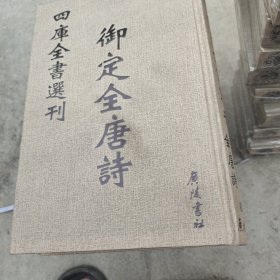 四庫全書選刊
御定全唐詩
廣陵書社
全唐詩